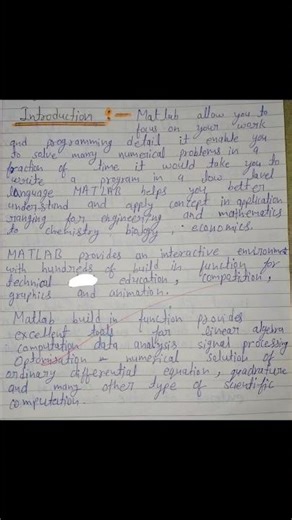 Introduction :- Matlab allow you to
focus on your work
and programming detail it enable you
to solve many numerical problems in a
fraction of time it would take you to
write a program in a low level
language MATLAB helps you better
understand and apply concept in application
ranging for engineering and mathematics
to chemistry biology, economics.
MATLAB provides an interactive environment
with hundreds of build in function for
technical education, competition,
graphics and animation.
Matlab build in function provides
excellent tools for linear algebra
computation data analysis signal processing
Optimisation numerical solution of
ordinary differential equation, quadrature
and many other type of scientific
computation.